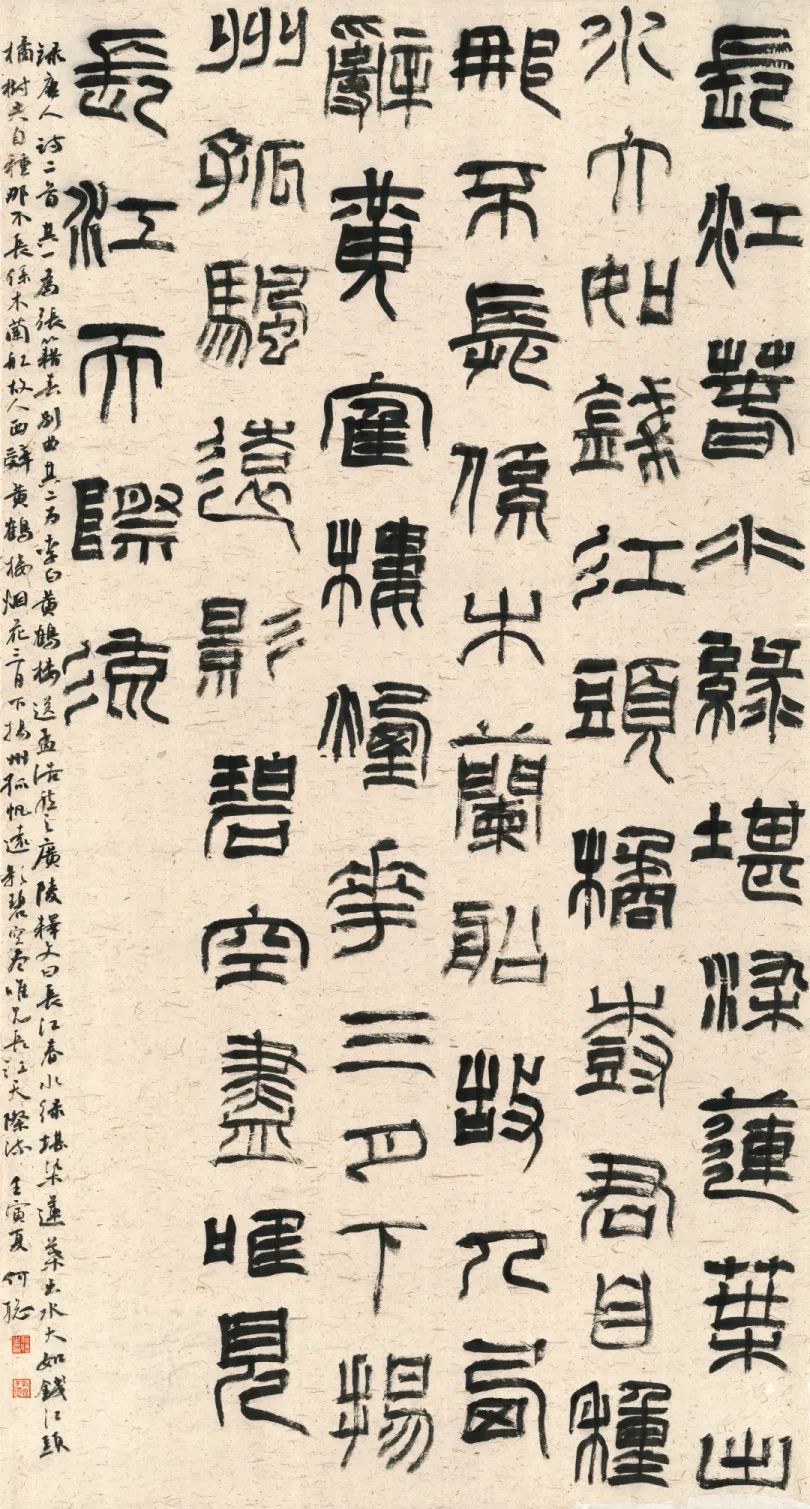 長江春水綠堪染蓮葉出
水大如錢江頭橘樹君自種
那不長係木蘭船故人西
辭黃鶴樓煙花三月下揚
州孤颿遠影碧空盡唯見
長江天際流
錄唐人詩二首其一為張籍春別曲其二為李白黃鶴樓送孟浩然之廣陵釋文曰長江春水綠堪染蓮葉出水大如錢江頭
橘樹君自種那不長係木蘭船故人西辭黃鶴樓烟花三月下揚州孤帆遠影碧空盡唯見長江天際流 壬寅夏 何聰